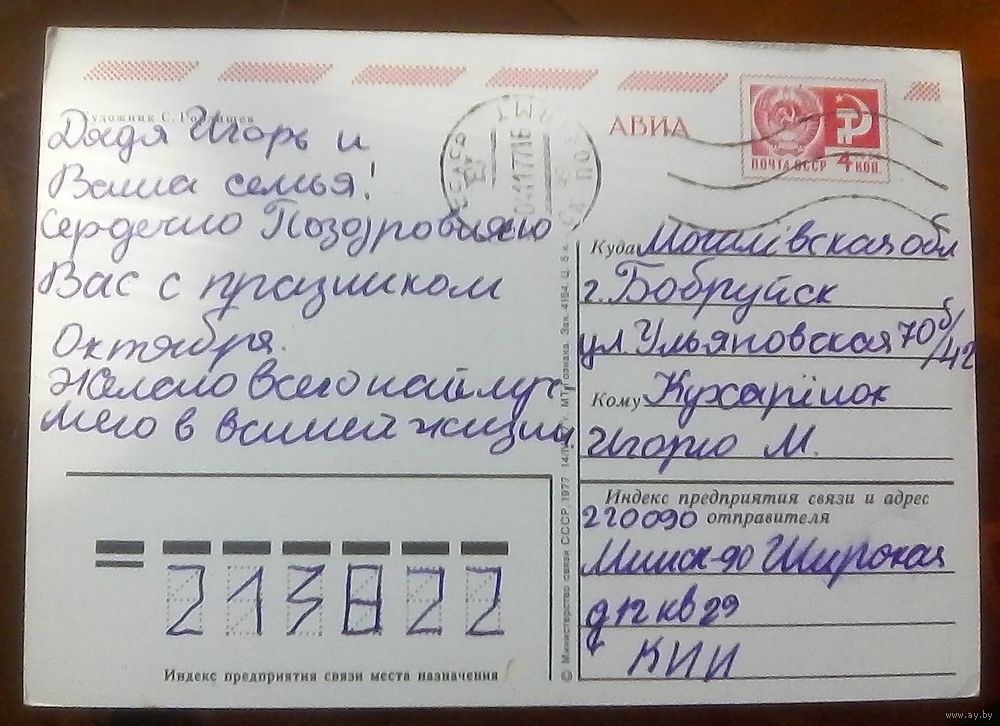 Художник С. Горлищев
АВИА
ПОЧТА СССР 4 КОП.
04 11 77 16
Дядя Игорь и
Ваша семья!
Сердечно Поздровляю
Вас с праздником
Октября.
Желаю всего наилуч
шего в вашей жизни
Куда Могилёвская обл
г. Бобруйск
ул. Ульяновская 70б/42
Кому Кухарёнок
Игорю М.
Индекс предприятия связи и адрес
220090 отправителя
Минск-90 Широкая
д12 кв 29
КИИ
© Министерство связи СССР. 1977
Зак. 4154. Ц. 5 к.
213822
Индекс предприятия связи места назначения
www.ay.by